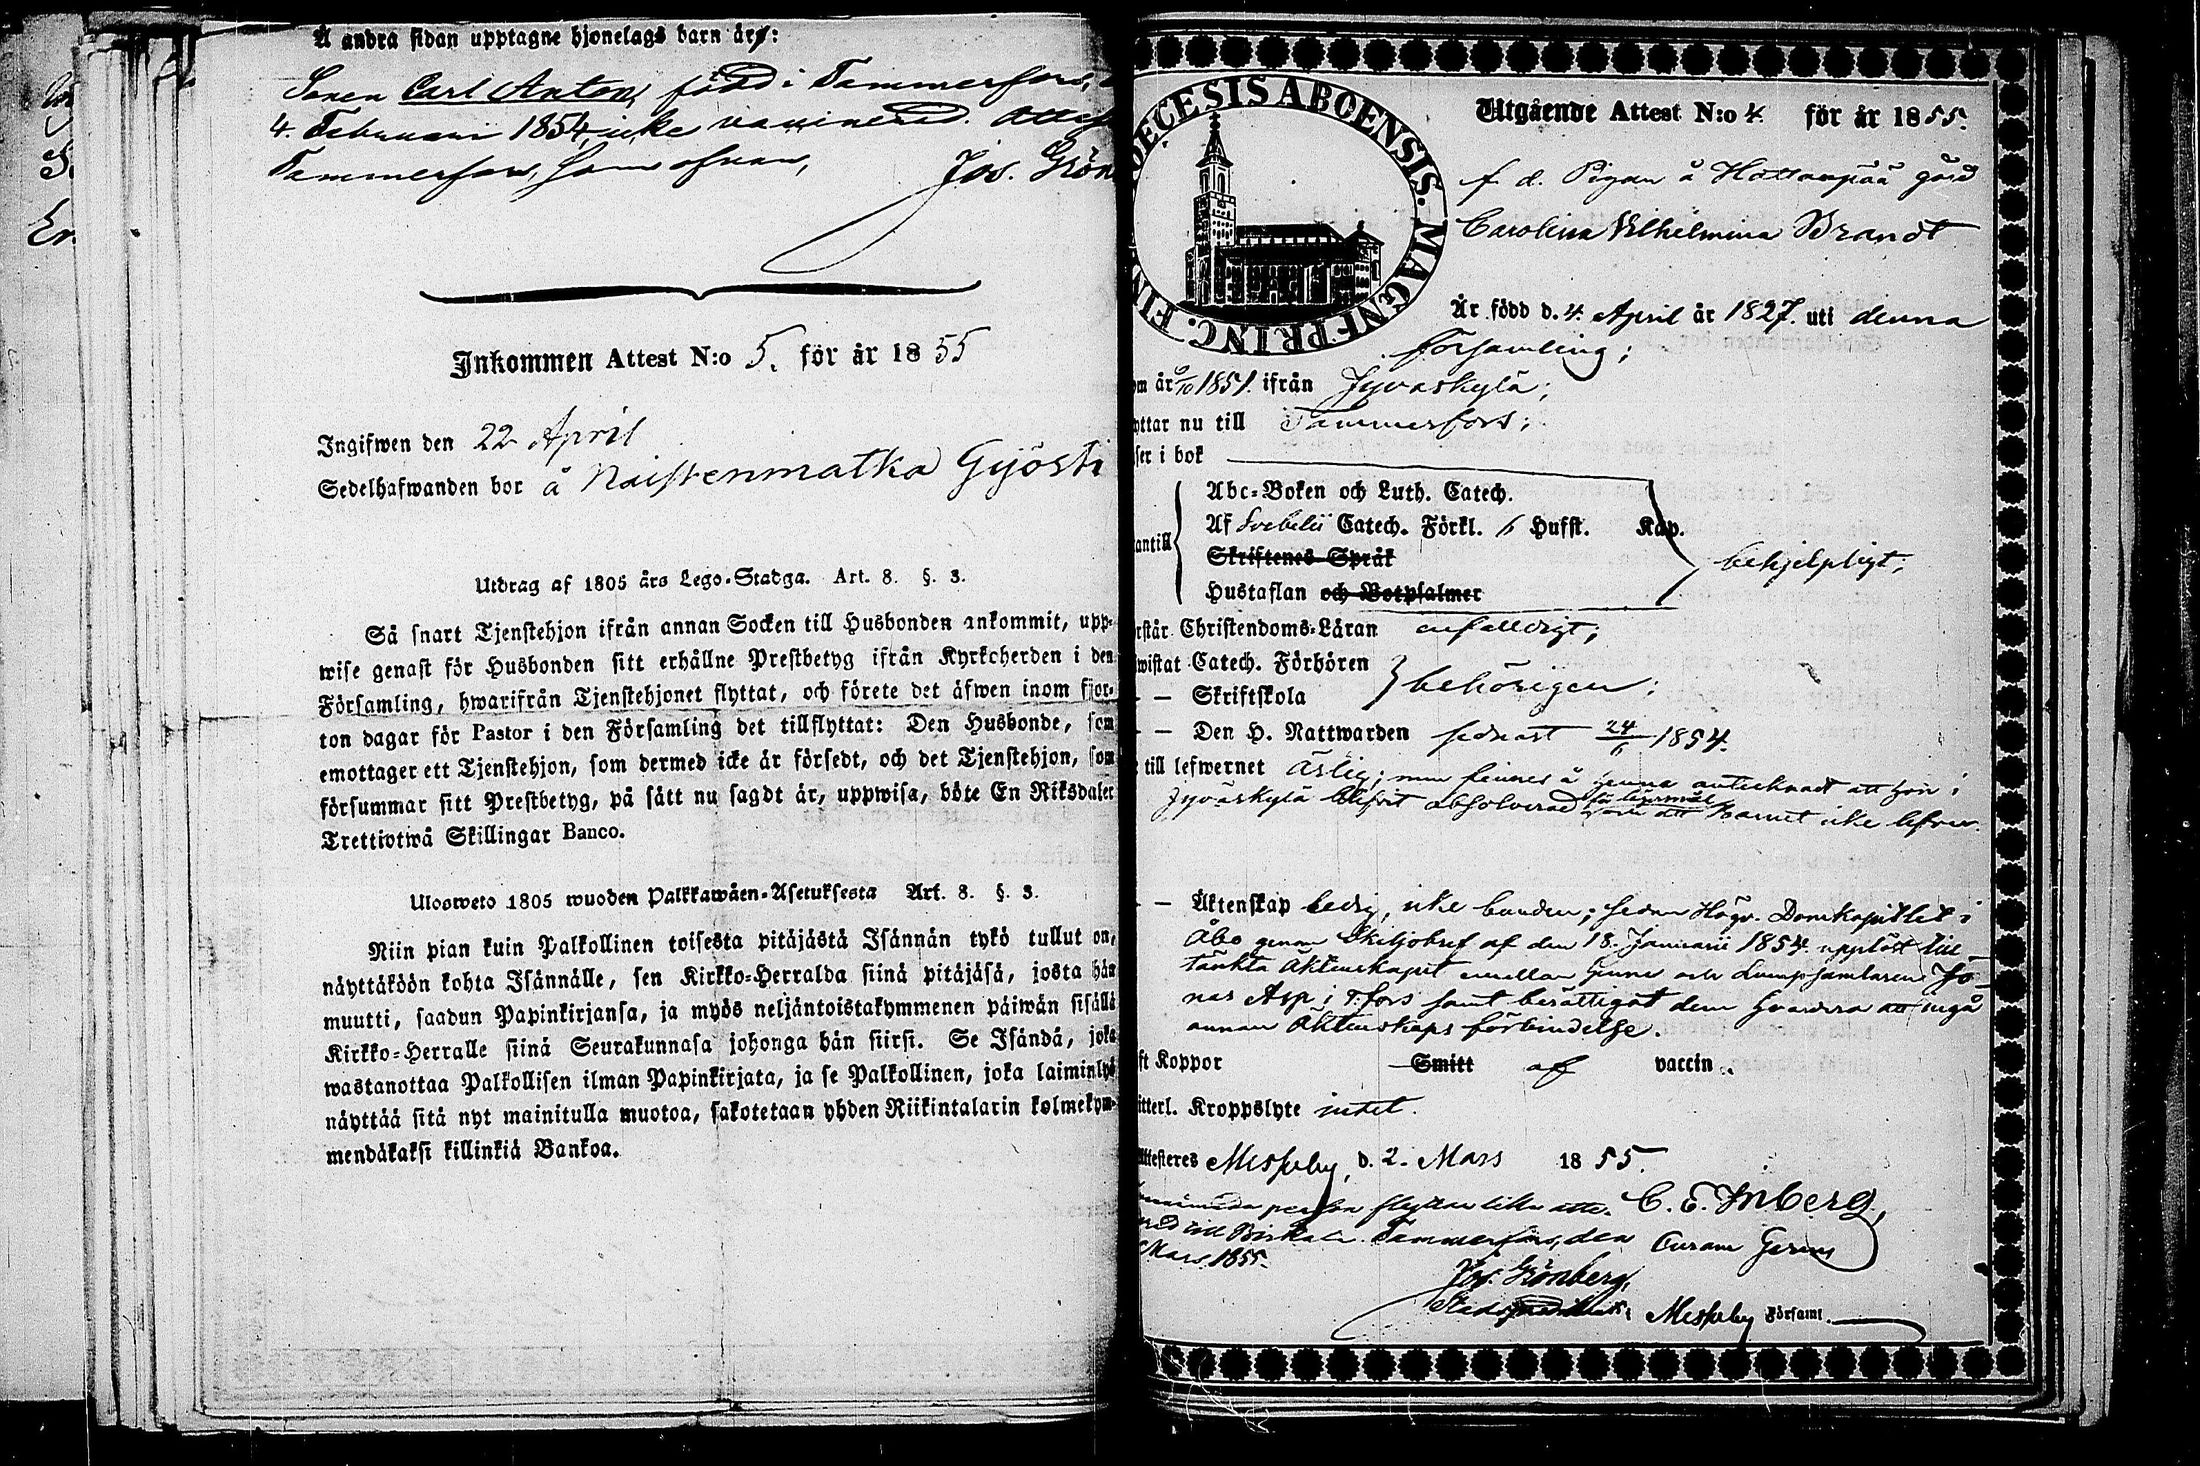 Å andra sidan upptagne hjonelags barn äro:
Sonen Carl Anton, född i Tammerfors,
4. Februari 1854, icke vaccinerad. Attest
Tammerfors, som ofvan,
Jos. Grön
Inkommen Attest N:o 5. för år 1855
Ingifwen den 22 April
Sedelhafwanden bor å Naistenmatka Gyösti
Utdrag af 1805 års Lego-Stadga. Art. 8. §. 3.
Så snart Tjenstehjon ifrån annan Socken till Husbonden ankommit, upp-
wise genast för Husbonden sitt erhållne Prestbetyg ifrån Kyrkoherden i den
Församling, hwarifrån Tjenstehjonet flyttat, och förete det äfwen inom fjor-
ton dagar för Pastor i den Församling det tillflyttat: Den Husbonde, som
emottager ett Tjenstehjon, som dermed icke är försedt, och det Tjenstehjon, som
försummar sitt Prestbetyg, på sätt nu sagdt är, uppwisa, böte En Riksdaler
Trettiotwå Skillingar Banco.
Ulosweto 1805 wuoden Palkkawäen-Asetuksesta Art. 8. §. 3.
Niin pian kuin Palkollinen toisesta pitäjästä Isännän tykö tullut on,
näyttäköön kohta Isännälle, sen Kirkko-Herralda siinä pitäjäsä, josta hän
muutti, saadun Papinkirjansa, ja myös neljäntoistakymmenen päiwän sisällä
Kirkko-Herralle siinä Seurakunnasa johonga hän siirsi. Se Isändä, joka
wastanottaa Palkollisen ilman Papinkirjata, ja se Palkollinen, joka laiminlyö
näyttää sitä nyt mainitulla muotoa, sakotetaan yhden Riikintalarin kolmekym-
mendäkaksi killinkiä Bankoa.
DECESIS ABOENSIS. MAGNI PRINC. FIN
Utgående Attest N:o 4 för år 1855.
f. d. Pigan å Hattanpää gård
Carolina Vilhelmina Brandt
År född d. 4. April år 1827. uti denna
församling;
om år 9/10 1851. ifrån Jyväskylä;
yttar nu till Tammerfors;
ser i bok
antill
Abc-Boken och Luth. Catech.
Af Svebelii Catech. Förkl. 6 Hufst. Kap.
Skriftenes Språk
behjelpligt;
Hustaflan och Botpsalmer
rstår Christendoms-Läran enfaldigt;
wistat Catech. Förhören
behörigen;
- - Skriftskola
- - Den H. Nattwarden sednast 24/6 1854.
till lefwernet ärlig; men finnes å henne antecknadt att hon i
Jyväskylä blifvit absolverad för lägersmål att Barnet icke lefver.
- - Äktenskap ledig, icke bunden; sedan Högv. Domkapitlet i
Åbo genom Skiljobref af den 18. Januarii 1854 upplöst till-
tänkta Äktenskapet emellan henne och Lumpsamlaren Jo-
nas Asp i T:fors samt berättigat dem hvardera att ingå
annan Äktenskaps förbindelse.
ft Koppor Smitt af vaccin.
itterl. Kroppslyte intet.
Attesteres Messuby, d. 2. Mars 1855.
person flyttar
C. E. Inberg,
till Birkala. Tammerfors, den
Curam Gerens
Mars 1855.
Jos. Grönberg,
i Messuby Församl.